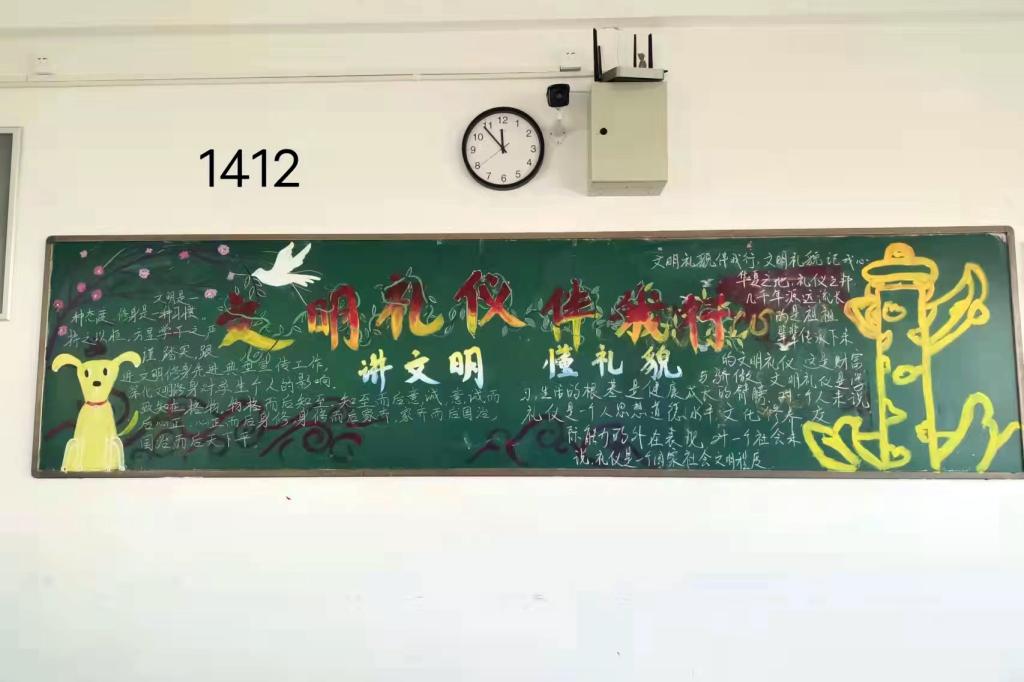 12
1
2
3
4
5
6
7
8
9
10
11
1412
文明礼仪伴我行
讲文明 懂礼貌
文明是一
种态度,修身是一种习惯。
持之以恒,方显学子之风
谨 踏实
进文明修身先进典型宣传工作,
深化文明修身对学生个人的影响
致知在格物,物格而后知至,知至而后意诚,意诚而
后心正,心正而后身修,身修而后家齐,家齐而后国治,
国治而后天下平。
文明礼貌伴我行,文明礼貌记我心
华夏之地,礼仪之邦
几千年源远流长
为是祖祖
辈辈传承下来
的文明礼仪,这是财富
与骄傲。文明礼仪是学
习,生活的根基,是健康成长的臂膀。对一个人来说,
礼仪是一个人思想道德水平,文化修养,交
际能力的外在表现,对一个社会来
说,礼仪是一个国家社会文明程度